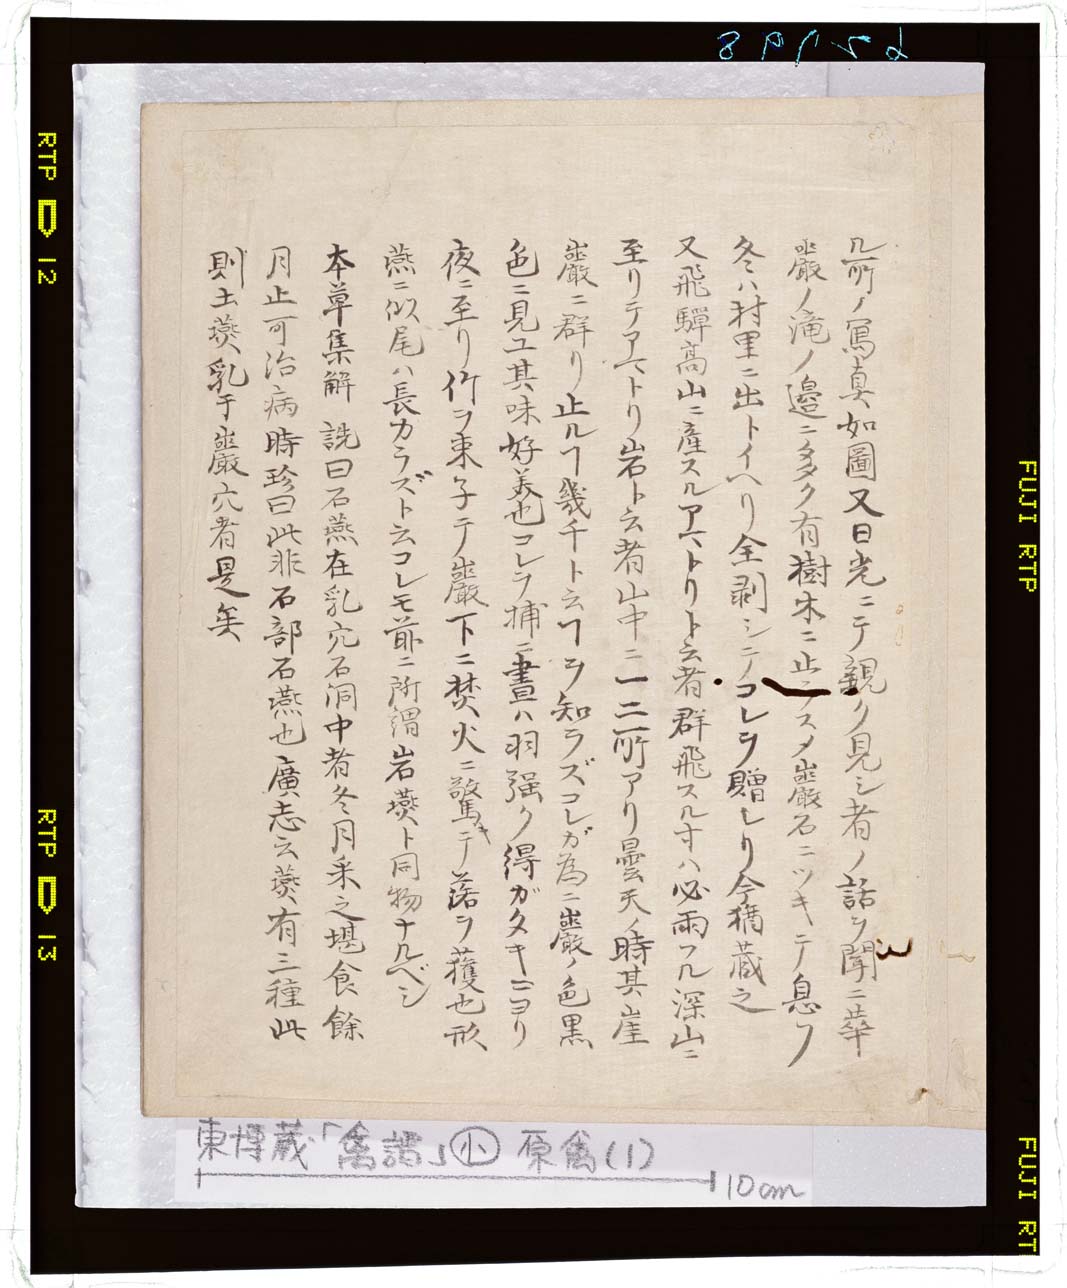 凡所ノ寫真如圖又日光ニテ親ク見シ者ノ話ヲ聞ニ華
巖ノ滝ノ邉ニ多ク有樹木ニ止ラスメ巖石ニツキテ息フ
冬ハ村里ニ出トイヘリ全剥シテコレヲ贈レリ今猶蔵之
又飛驒高山ニ産スルアマトリト云者群飛スルヿハ必雨フル深山ニ
至リテアマトリ岩ト云者山中ニ一二三所アリ曇天ノ時其崖
巖ニ群リ止ルヿ幾千ト云ヿヲ知ラズコレガ為ニ巖ノ色黒
色ニ見ユ其味好美也コレヲ捕ニ晝ハ羽强ク得ガタキニヨリ
夜ニ至リ竹ヲ束子テ巖下ニ焚火ニ驚キテ落ヲ獲也形
燕ニ似尾ハ長カラズト云コレモ前ニ所謂岩燕ト同物ナルベシ
本草集解 詵曰石燕在乳穴石洞中者冬月采之堪食餘
月止可治病時珍曰此非石部石燕也廣志云燕有三種此
則土燕乳于巖穴者是矣
東博蔵「禽譜」小 原禽(1)
10cm
RTP 12
RTP 13
FUJI RTP
FUJI RT